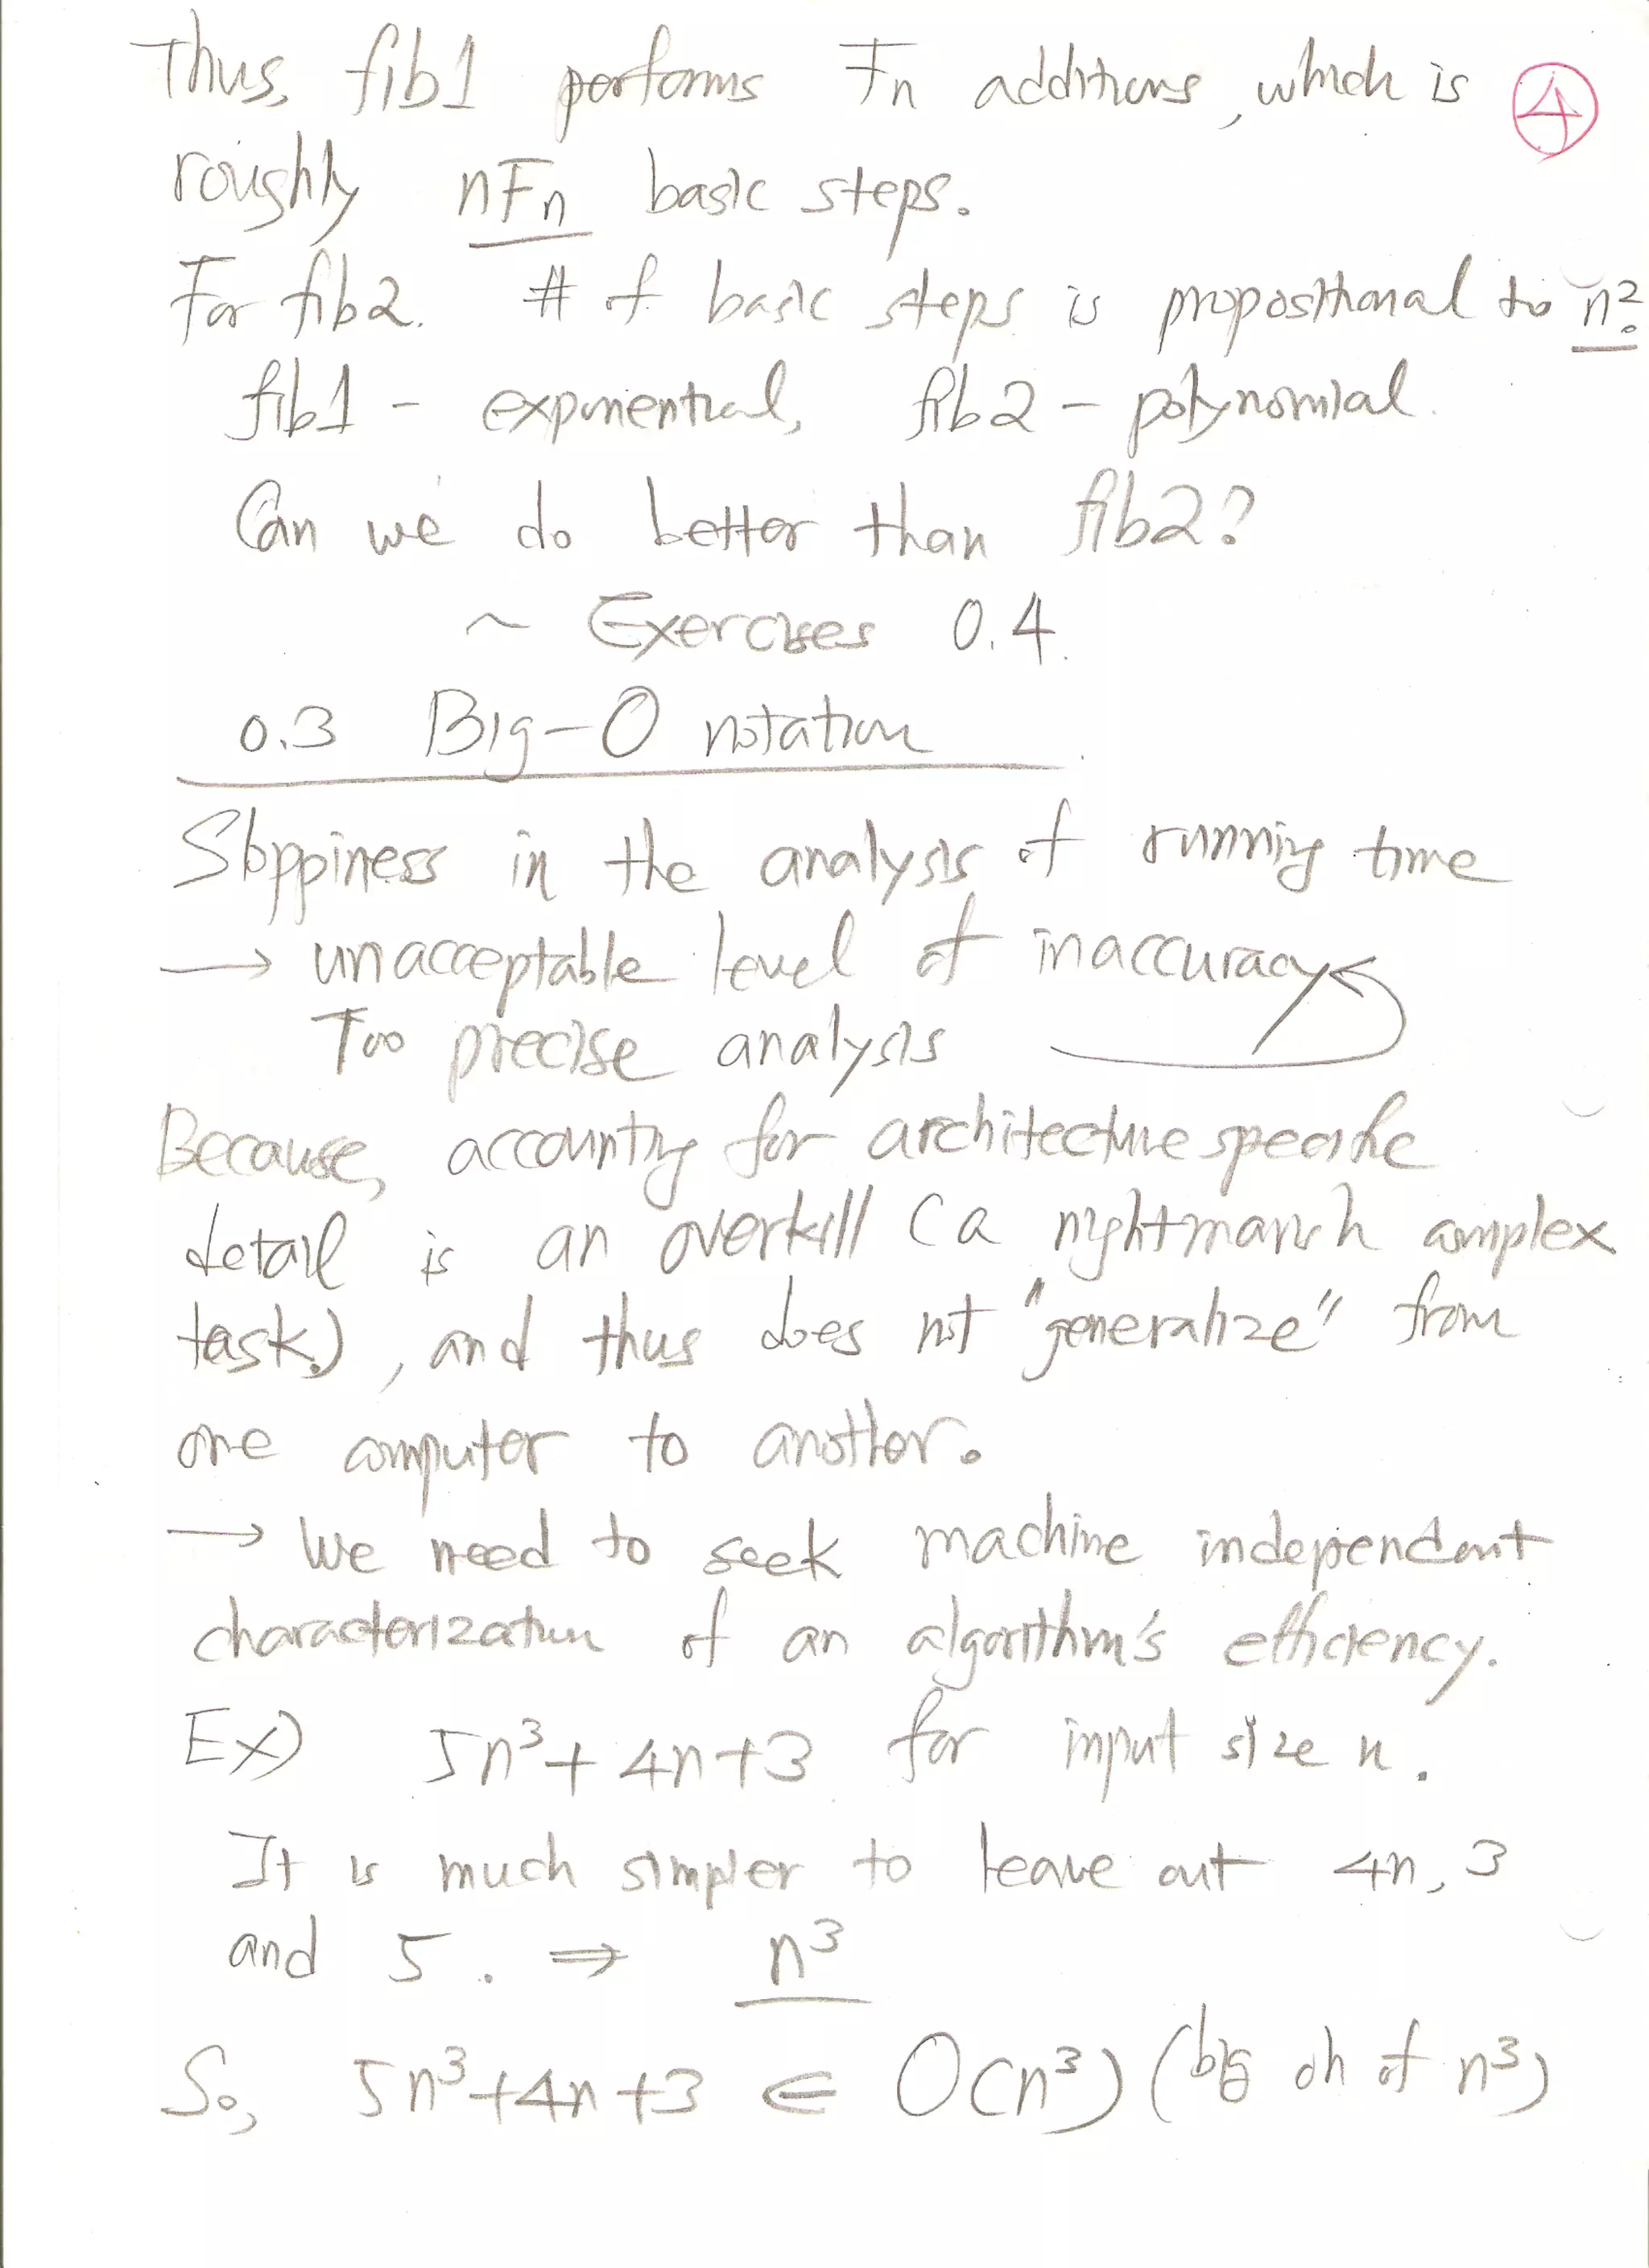 Thus, fib1 performs Fn additions, which is ④
roughly nFn basic steps.
For fib2. # of basic steps is propositional to n².
fib1 - exponential, fib2 - polynomial.
Can we do better than fib2?
~ Exercises 0.4.
0.3 Big-O notation
Sloppiness in the analysis of running time
→ unacceptable level of inaccuracy
Too precise analysis
Because, accounting for architecture specific
detail is an overkill (a nightmarish complex
task.), and thus does not "generalize" from
one computer to another.
→ We need to seek machine independent
characterization of an algorithm's efficiency.
Ex) 5n³+4n+3 for input size n.
It is much simpler to leave out 4n, 3
and 5. ⇒ n³
So, 5n³+4n+3 ∈ O(n³) (big oh of n³)